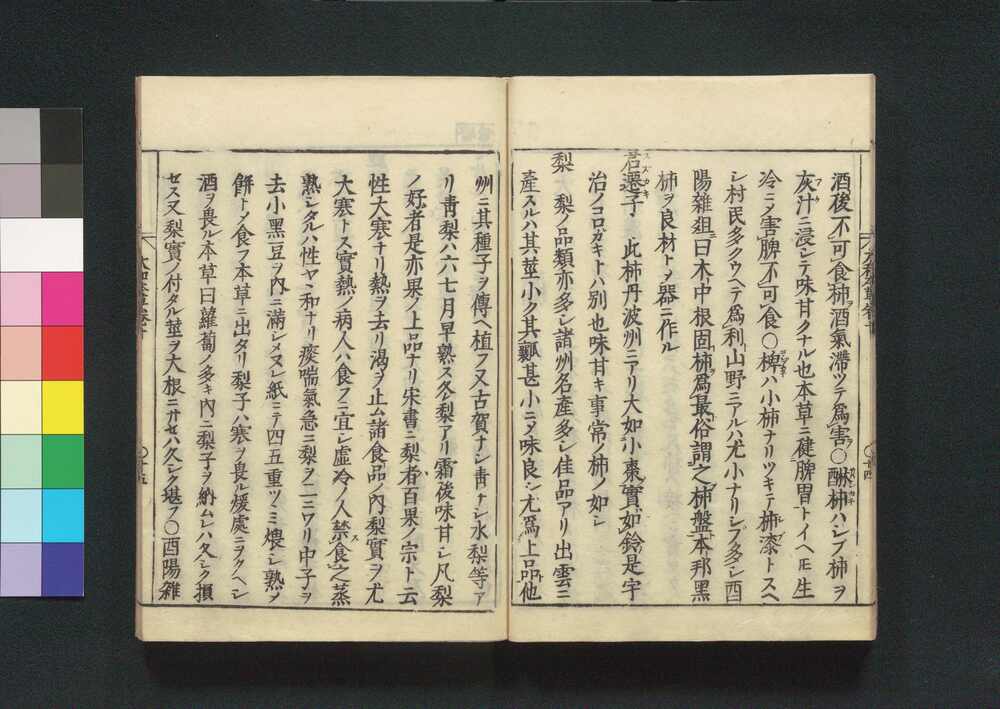 酒後不可食柿酒氣滯ツテ爲害○醂柿ハシブ柿ヲ
灰汁ニ浸シテ味甘クナル也本草ニ健脾胃トイヘ𪜈生
冷ニメ害脾不可食○椑ハ小柿ナリツキテ柿漆トスヘ
シ村民多クウヘテ爲利山野ニアルハ尤小ナリシブ多シ酉
陽雜俎ニ曰木中根固柿爲最俗謂之柿盤本邦黑
柿ヲ良材トメ器ニ作ル
君遷子 此柿丹波州ニアリ大如小棗實如鈴是宇
治ノコロガキトハ別也味甘キ事常ノ柿ノ如シ
梨 梨ノ品類亦多シ諸州名產多シ佳品アリ出雲ニ
產スルハ其莖小ク其瓤甚小ニメ味良シ尤爲上品他
州ニ其種子ヲ傳ヘ植フ又古賀ナシ青ナシ水梨等ア
リ青梨ハ六七月早熟ス冬梨アリ霜後味甘シ凡梨
ノ好者是亦果ノ上品ナリ宋書ニ梨者百果ノ宗ト云
性大寒ナリ熱ヲ去リ渴ヲ止ム諸食品ノ內梨實ヲ尤
大寒トス實熱ノ病人ハ食フニ宜シ虛冷ノ人禁食之蒸
熟シタルハ性ヤヽ和ナリ痰喘氣急ニ梨ヲ二ニワリ中子ヲ
去小黑豆ヲ內ニ滿シメヌレ紙ニテ四五重ツヽミ煨シ熟メ
餠トメ食フ本草ニ出タリ梨子ハ寒ヲ畏ル煖處ニヲクヘシ
酒ヲ畏ル本草曰蘿蔔ノ多キ內ニ梨子ヲ納ムレハ久シク損
ゼス又梨實ノ付タル莖ヲ大根ニサセハ久シク堪フ○酉陽雜